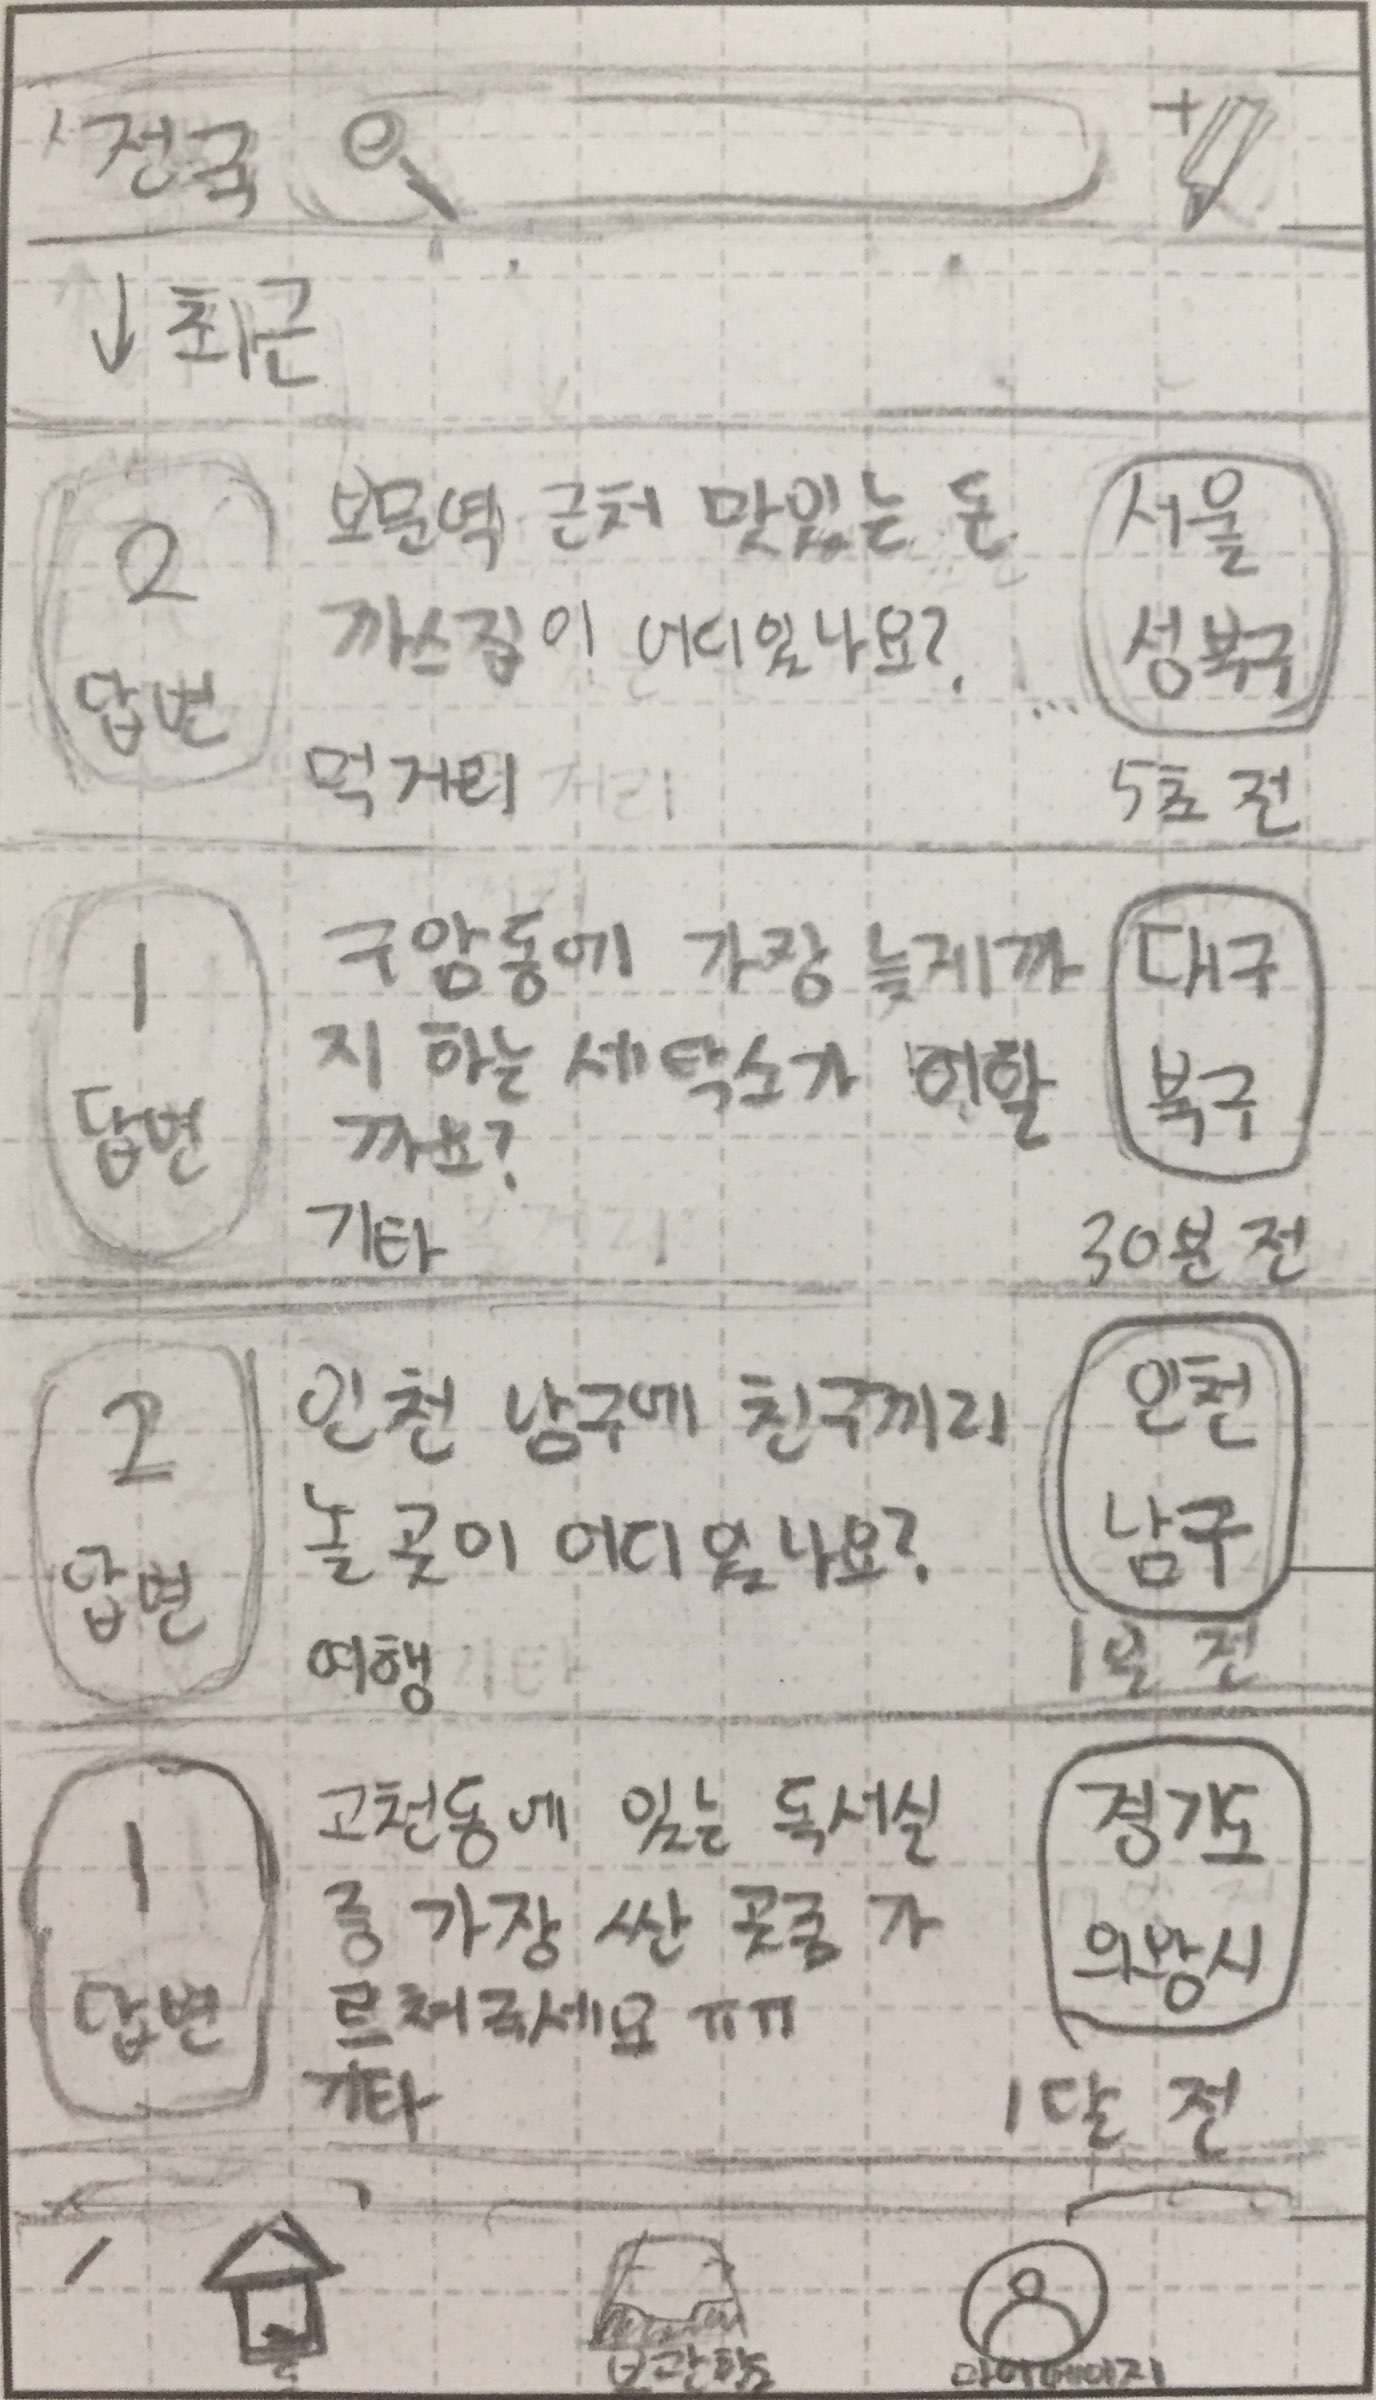 전국
↓ 최근
2
답변
보문역 근처 맛있는 돈
까스집이 어디있나요?
...
먹거리
서울
성북구
5초 전
1
답변
구암동에 가장 늦게까
지 하는 세탁소가 어딜
까요?
기타
대구
북구
30분 전
2
답변
인천 남구에 친구끼리
놀 곳이 어디있나요?
여행
인천
남구
1일 전
1
답변
고천동에 있는 독서실
중 가장 싼 곳좀 가
르쳐주세요 ㅠㅠ
기타
경기도
의왕시
1달 전
홈
보관함
마이페이지